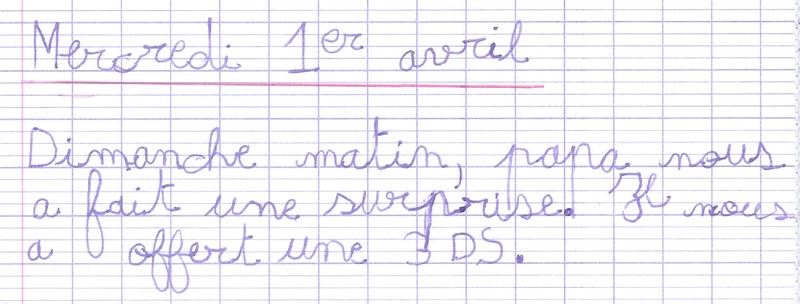 Mercredi 1er avril
Dimanche matin, papa nous
a fait une surprise. Il nous
a offert une 3DS.